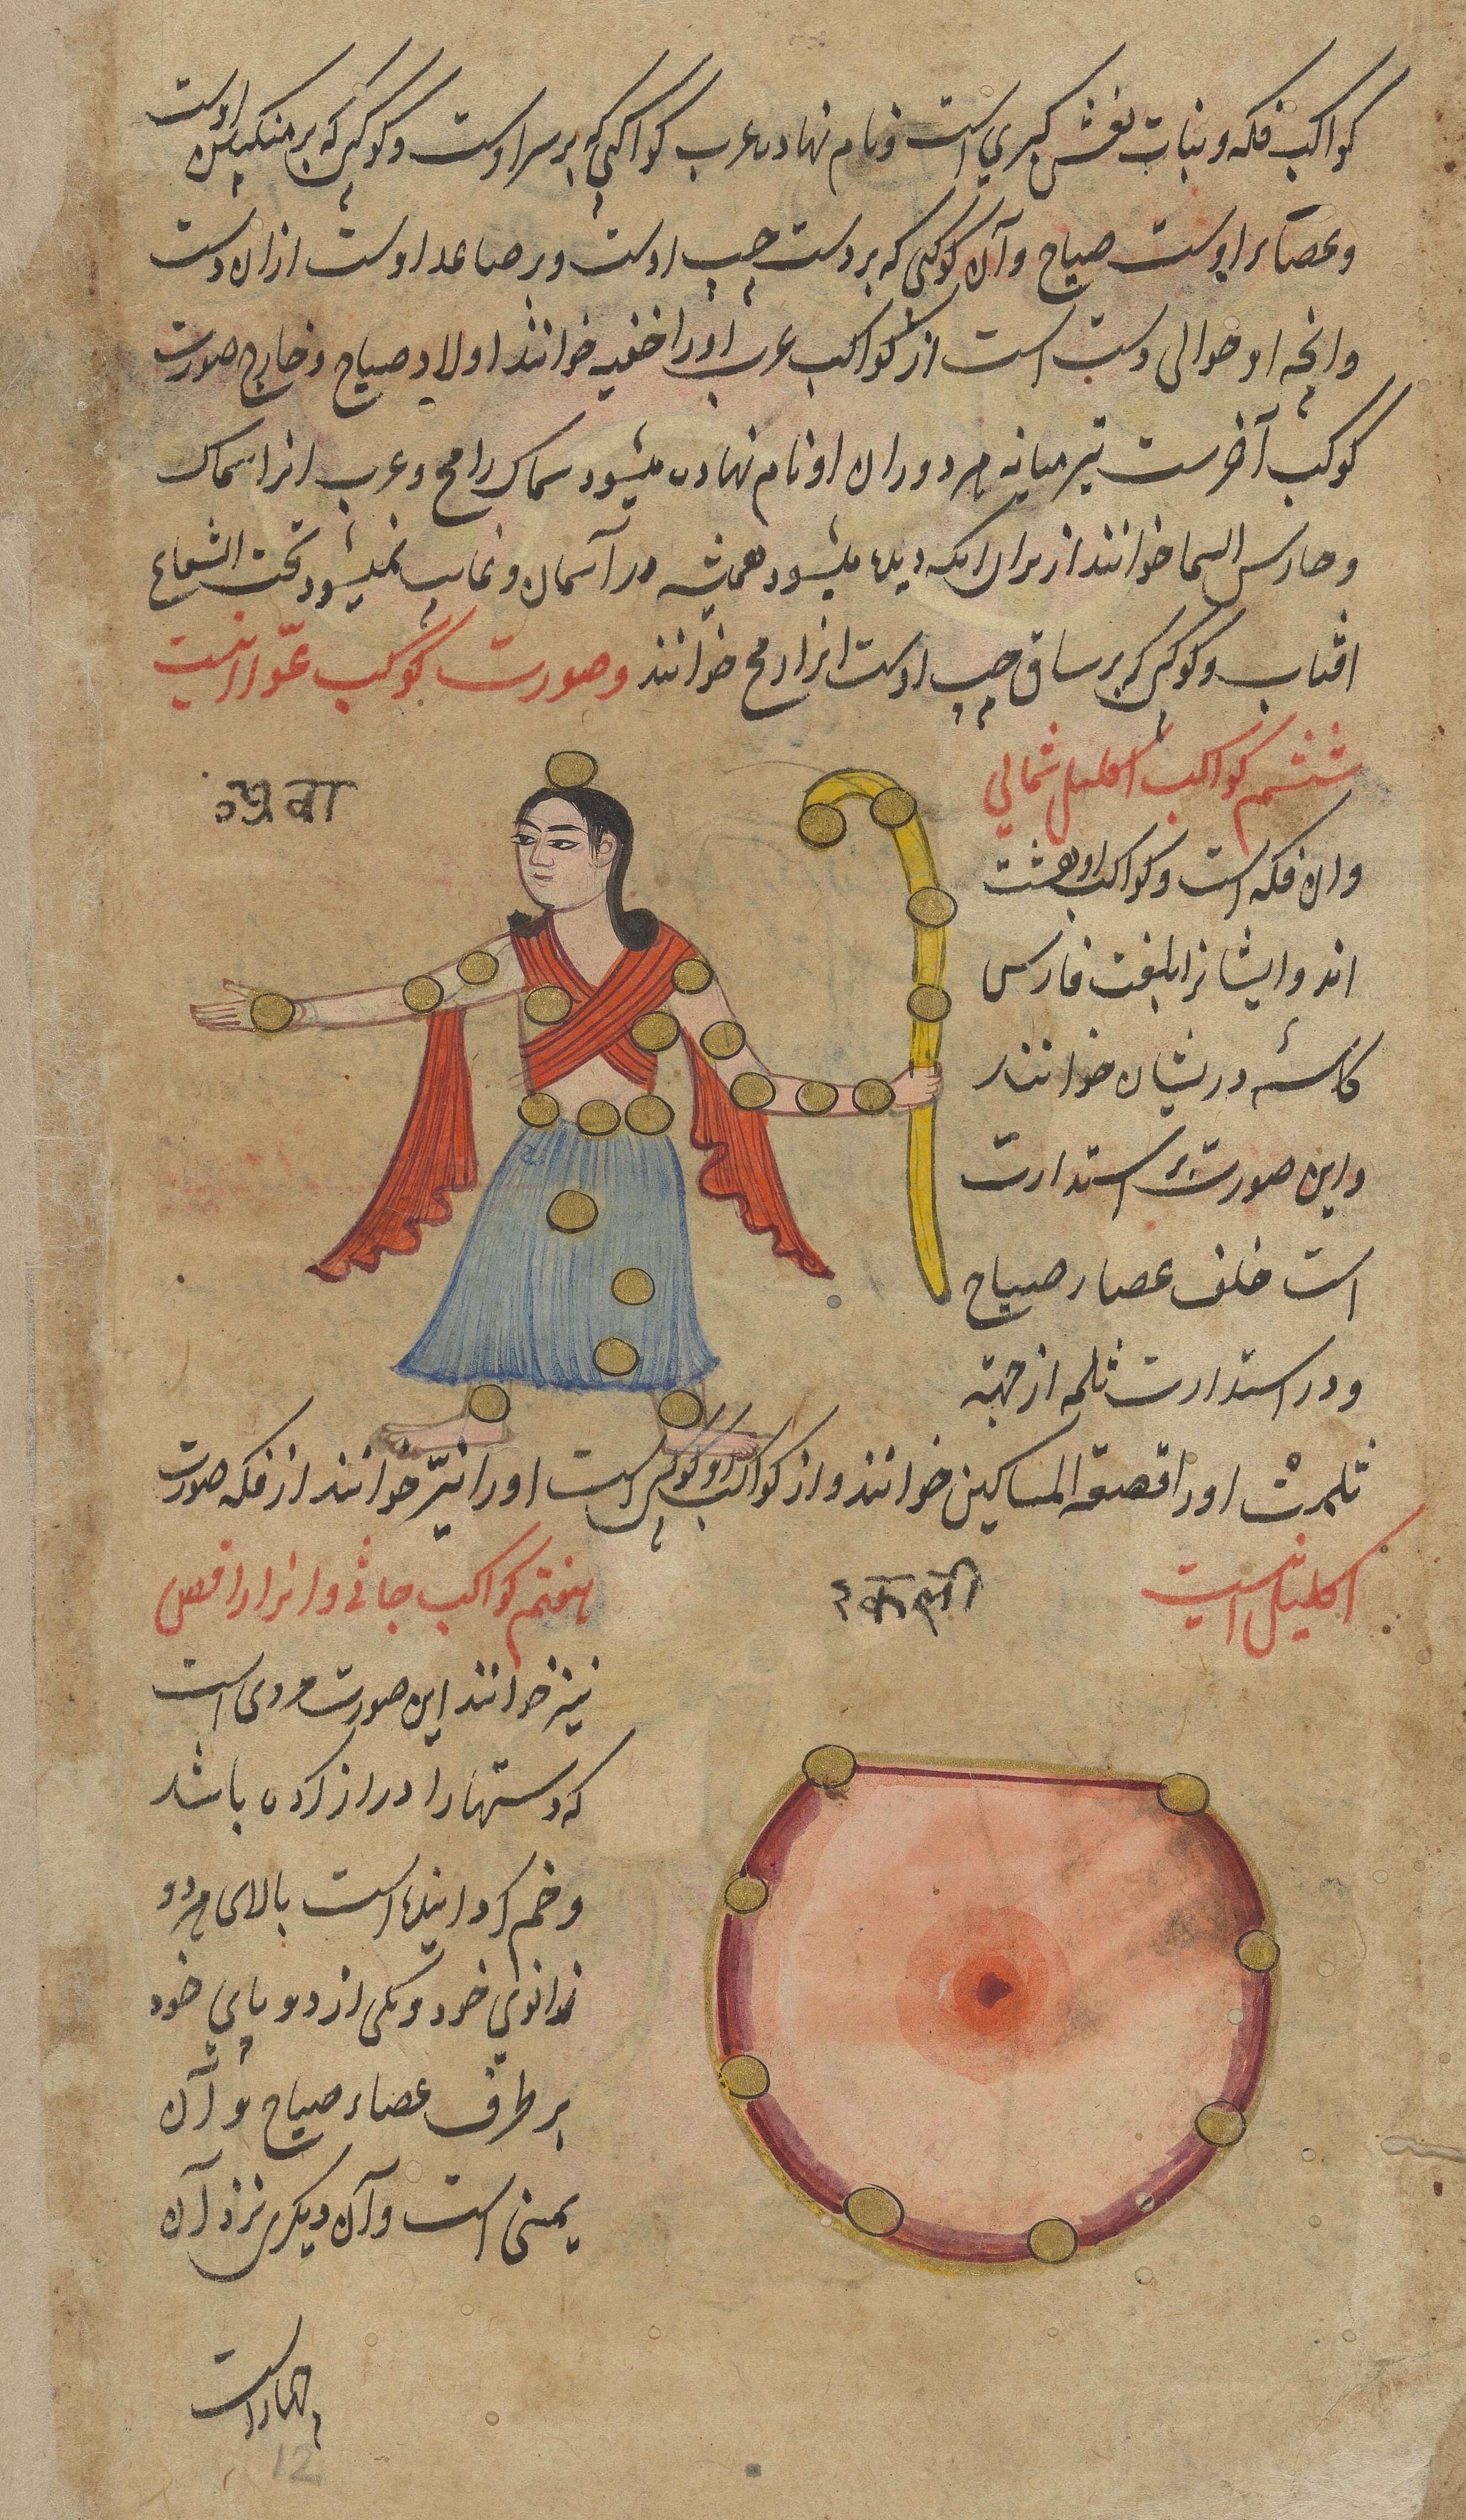 کواکب فکه و بنات نعش کبری است و نام نهادہ عرب کواکبی که بر سر اوست و کوکبی که بر منکبین اوست
و عصاء اوست صیاح و آن کوکبی که بر دست چپ اوست و بر صاعد اوست از ان دست
و انچه او حوالی دست است از کواکب عرب اورا خوانند اولاد صیاح و خارج صورت
کوکب آخرست میانه هر دو ران او نام نهادہ میشود سماک رامح و عرب انرا سماک
و حارس السما خوانند از برای انکه دیدہ میشود همیشه در آسمان و غایب نمیشود تحت الشعاع
افتاب و کوکبی که بر ساق چپ اوست انرا رمح خوانند وصورت کوکب عوّا اینست
ششم کواکب اکلیل شمالی
و ان فکه است و کواکب او هشت
اند و ایشانرا بلغت فارس
کاسهٔ درویشان خوانند
و این صورت بر استدارت
است خلف عصار صیاح
و در استدارت ثلمه از جهته
ثلمت اورا قصعة المساکین خوانند و از کواکب او کوکبی است اورا نیّر خوانند از فکه صورت
اکلیل اینست
هفتم کواکب جاثی و انرا راقص
نیز خوانند این صورت مردی است
که دستها را دراز کردہ باشد
و خم کردانیدہ است بالای هر دو
زانوی خود و یکی از دو پای خود
بر طرف عصاء صیاح و آن
یمنی است و آن دیکری نزد آن
چهار است
12